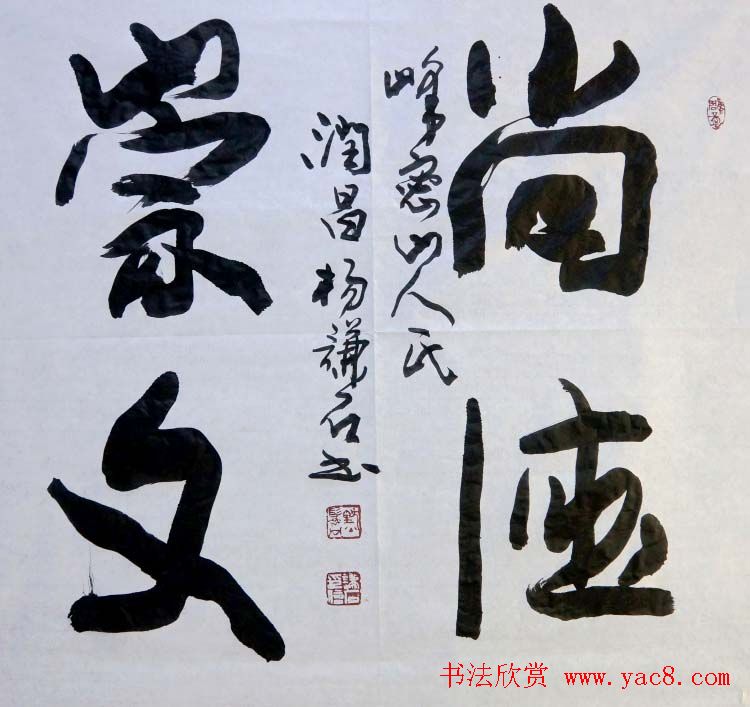 尚德
崇文
峰密山人氏
润昌杨谦石书
书法欣赏 www.yac8.com